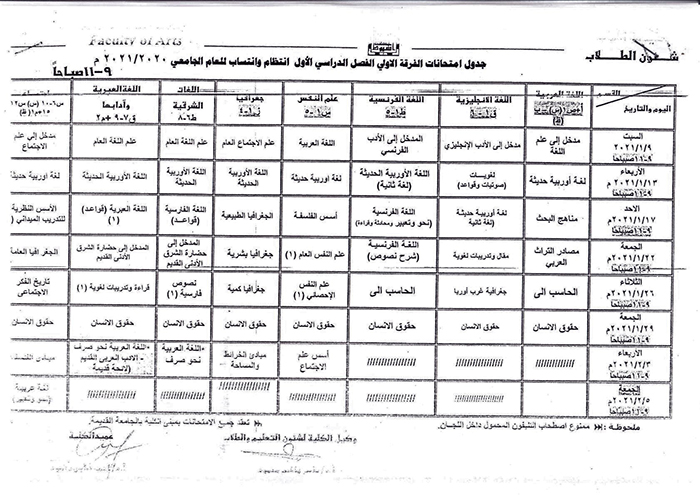 Faculty of Arts
شئون الطلاب
جدول امتحانات الفرقة الاولي الفصل الدراسي الأول انتظام وانتساب للعام الجامعي ٢٠٢١/٢٠٢٠ م
٩-١١صباحاً
اليوم والتاريخ
اللغة العربية
اللغة الانجليزية
اللغة الفرنسية
علم النفس
جغرافيا
اللغات الشرقية
اللغة العبرية وآدابها
السبت ٢٠٢١/١/٩م ٩-١١صباحاً
مدخل إلى علم اللغة
مدخل إلى الأدب الإنجليزي
المدخل إلى الأدب الفرنسي
اللغة العربية
علم الاجتماع العام
علم اللغة العام
علم اللغة العام
مدخل إلي علم الاجتماع
الأربعاء ٢٠٢١/١/١٣م ٩-١١صباحاً
لغة أوربية حديثة
لغويات (صوتيات وقواعد)
اللغة الأوربية الحديثة (لغة ثانية)
اللغة الأوربية الحديثة
اللغة الأوربية الحديثة
اللغة الأوربية الحديثة
اللغة الأوربية الحديثة
لغة أوربية حديثة
الاحد ٢٠٢١/١/١٧م ٩-١١صباحاً
مناهج البحث
لغة أوربية حديثة لغة ثانية
اللغة الفرنسية (نحو وتعبير ومحادثة وقراءة)
أسس الفلسفة
الجغرافيا الطبيعية
اللغة الفارسية (قواعد)
اللغة العبرية (قواعد) (١)
الأسس النظرية للتدريب الميداني
الجمعة ٢٠٢١/١/٢٢م ٩-١١صباحاً
مصادر التراث العربي
مقال وتدريبات لغوية
اللغة الفرنسية (شرح نصوص)
علم النفس العام (١)
جغرافيا بشرية
المدخل إلى حضارة الشرق الأدنى القديم
المدخل إلى حضارة الشرق الأدنى القديم
الجغرافيا العامة
الثلاثاء ٢٠٢١/١/٢٦م ٩-١١صباحاً
الحاسب الى
جغرافية غرب أوربا
الحاسب الى
علم النفس الإحصائي (١)
جغرافيا كمية
نصوص فارسية (١)
قراءة وتدريبات لغوية (١)
تاريخ الفكر الاجتماعي
الجمعة ٢٠٢١/١/٢٩م ٩-١١صباحاً
حقوق الانسان
حقوق الانسان
حقوق الانسان
حقوق الانسان
حقوق الانسان
حقوق الانسان
حقوق الانسان
حقوق الانسان
الأربعاء ٢٠٢١/٢/٣م ٩-١١صباحاً
أسس علم الاجتماع
مبادئ الخرائط والمساحة
اللغة العربية نحو صرف
اللغة العربية نحو صرف - الأدب العربي القديم (لائحة قديمة)
الجمعة ٢٠٢١/٢/٥م ٩-١١صباحاً
لغة عربية (نحو وتعبير)
ملحوظة: ممنوع اصطحاب التليفون المحمول داخل اللجان.
تعقد جميع الامتحانات بمبنى الكلية بالجامعة القديمة.
وكيل الكلية لشئون التعليم والطلاب
عميد الكلية